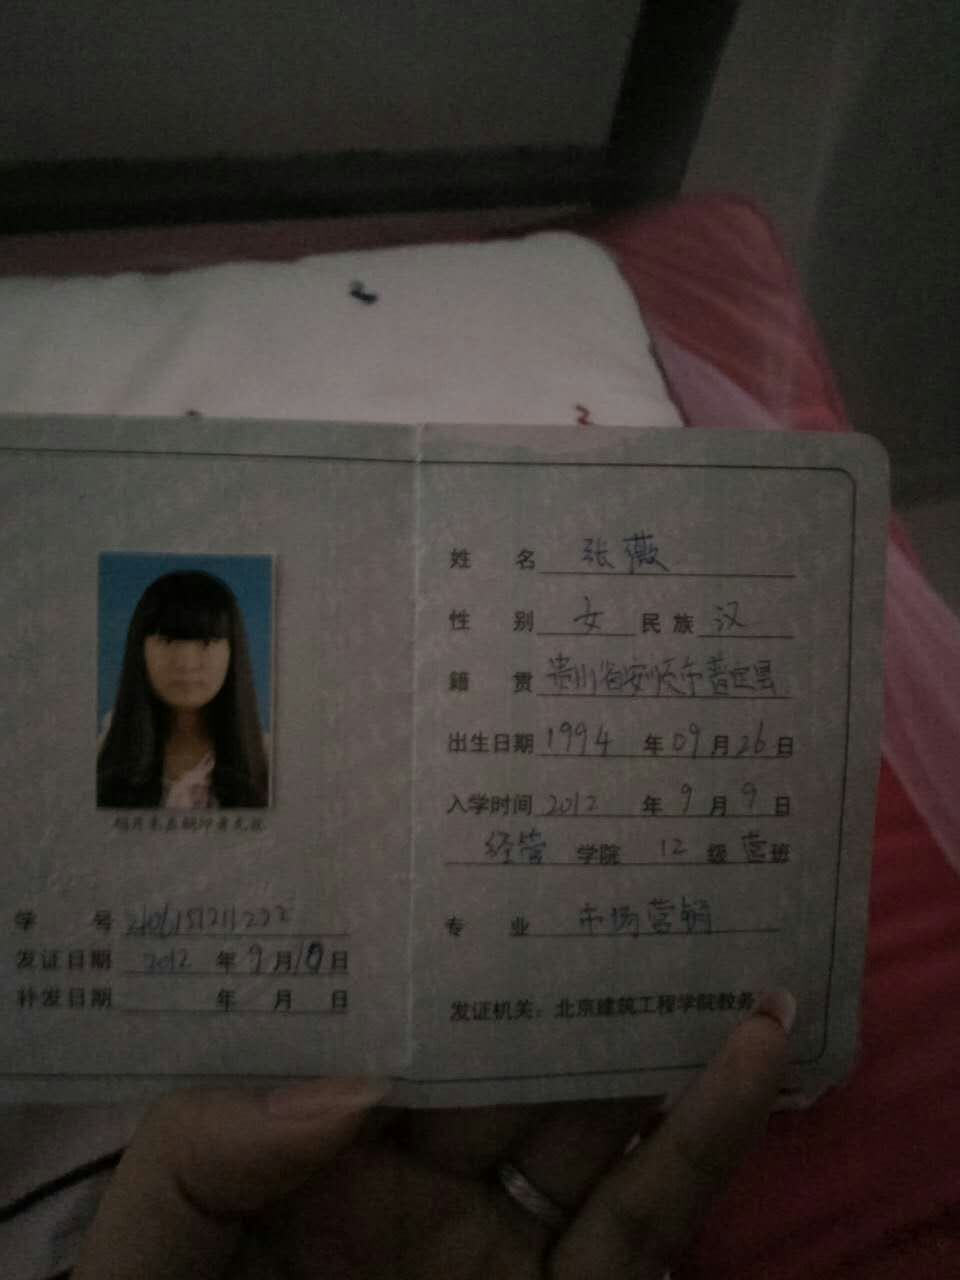 学 号
发证日期 2012 年 9 月 10 日
补发日期 年 月 日
姓 名 张薇
性 别 女 民 族 汉
籍 贯 贵州省安顺市普定县
出生日期 1994 年 09 月 26 日
入学时间 2012 年 9 月 9 日
经管 学院 12 级 营 班
专 业 市场营销
发证机关：北京建筑工程学院教务